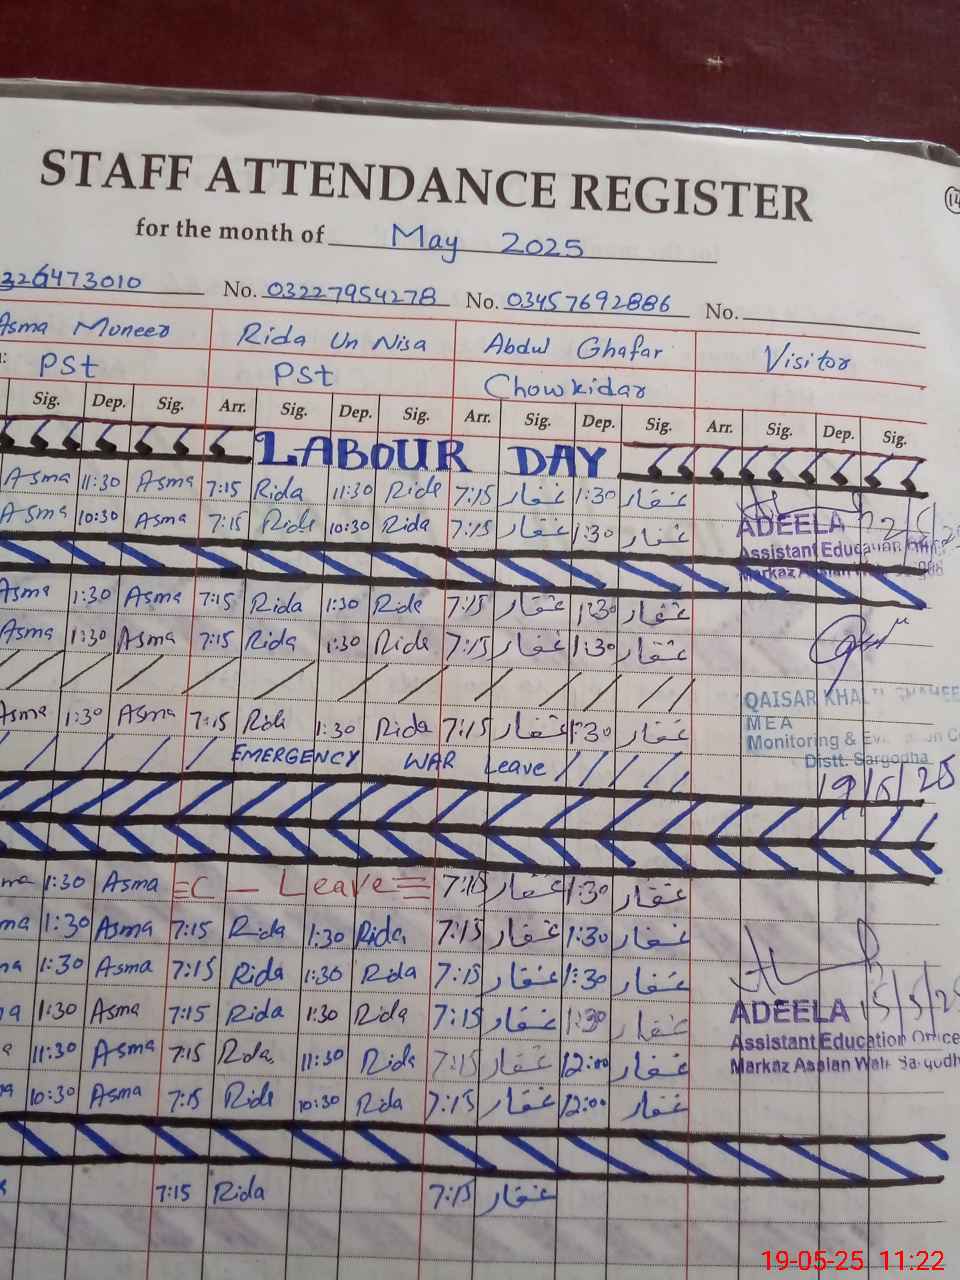 STAFF ATTENDANCE REGISTER
14
for the month of May 2025
326473010 No. 03227954278 No. 03457692886 No.
Asma Muneer Rida Un Nisa Abdul Ghafar Visitor
PSt PSt Chowkidar
Sig. Dep. Sig. Arr. Sig. Dep. Sig. Arr. Sig. Dep. Sig. Arr. Sig. Dep. Sig.
LABOUR DAY
Asma 11:30 Asma 7:15 Rida 11:30 Rida 7:15 غفار 1:30 غفار
Asma 10:30 Asma 7:15 Rida 10:30 Rida 7:15 غفار 1:30 غفار
ADEELA
Assistant Education
Markaz Assian Wali
Asma 1:30 Asma 7:15 Rida 1:30 Rida 7:15 غفار 1:30 غفار
Asma 1:30 Asma 7:15 Rida 1:30 Rida 7:15 غفار 1:30 غفار
QAISAR
Asma 1:30 Asma 7:15 Rida 1:30 Rida 7:15 غفار 1:30 غفار
MEA
Monitoring &
EMERGENCY WAR Leave
Distt. Sargodha
19/5/25
ma 1:30 Asma C - Leave 7:15 غفار 1:30 غفار
ma 1:30 Asma 7:15 Rida 1:30 Rida 7:15 غفار 1:30 غفار
ma 1:30 Asma 7:15 Rida 1:30 Rida 7:15 غفار 1:30 غفار
a 1:30 Asma 7:15 Rida 1:30 Rida 7:15 غفار 1:30 غفار
ADEELA 15/5/25
Assistant Education Officer
Markaz Assian Wali Sargodh
a 11:30 Asma 7:15 Rida 11:30 Rida 7:15 غفار 12:00 غفار
a 10:30 Asma 7:15 Rida 10:30 Rida 7:15 غفار 12:00 غفار
7:15 Rida 7:15 غفار
19-05-25 11:22